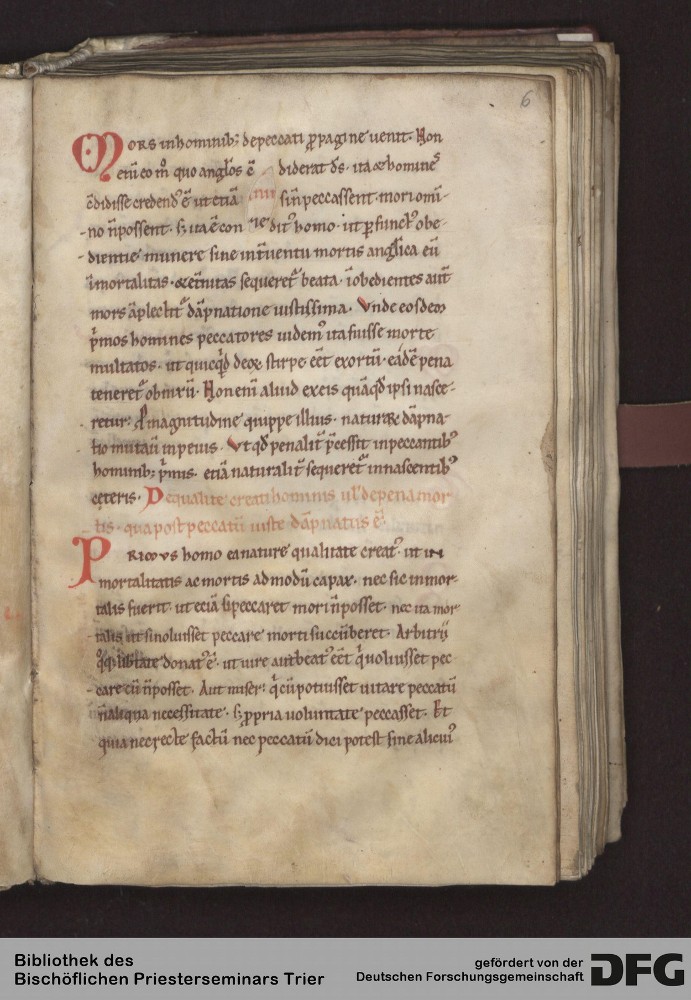 6
Mors in hominib; de peccati ꝓpagine uenit. Non
eni᷑ eo m̊ quo angłos c̄ diderat ds̄. ita & homines
c̄didisse credendꝰ ē ut etiā si n̄ peccassent. mori omi-
no n̄ possent. s; ita ē con ditꝰ homo. ut ꝑfunctꝰ obe-
dientie munere sine int̄uentu mortis anglica eū
īmortalitas. & et̄nitas sequeret᷑ beata. īobedientes aut̄
mors āplectit᷑ dāpnatione iustissima. Vnde eosdem
p̄mos homines peccatores uidemꝰ ita fuisse morte
multatos. ut quicq̄d de eoꝝ stirpe eēt exortū. eādē pena
teneret᷑ obnixiū. Non eni᷑ aliud ex eis quā qd̄ ipsi nasce-
retur. magnitudine quippe illius. naturā dāpna-
tio mutauit in peius. Vt qd̄ penalit̄ p̄cessit in peccantibꝰ
hominib; p̄mis. etiā naturalit̄ sequeret᷑ in nascentibꝰ
cęteris. De qualite creati hominis ul᷑ de pena mor
tis. qua post peccatū iuste dāpnatus ē.
Primus homo ea nature qualitate creatꝰ. ut in-
mortalitatis ac mortis ad modū capax. nec sic inmor-
talis fuerit. ut etiā si peccaret mori n̄ posset. nec ita mor-
talis ut si noluisset peccare morti succūberet. Arbitrii
q̊q; lib̄tate donatꝰ ē. ut iure aut beatꝰ eēt q̄ uoluisset pec-
care cū n̄ posset. Aut miser. q̄ cū potuisset uitare peccatū
n̄ aliqua necessitate. s; ꝓpria uoluntate peccasset. Et
quia nec recte factū nec peccatū dici potest sine alicuiꝰ
Bibliothek des
Bischöflichen Priesterseminars Trier
gefördert von der
Deutschen Forschungsgemeinschaft
DFG